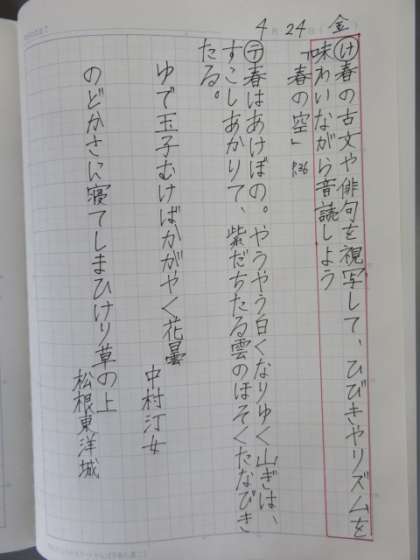 4月24日(金)
け 春の古文や俳句を視写して、ひびきやリズムを
味わいながら音読しよう
「春の空」 P.36
テ 春はあけぼの。やうやう白くなりゆく山ぎは、
すこしあかりて、紫だちたる雲のほそくたなびき
たる。
ゆで玉子むけばかがやく花曇
中村汀女
のどかさに寝てしまひけり草の上
松根東洋城